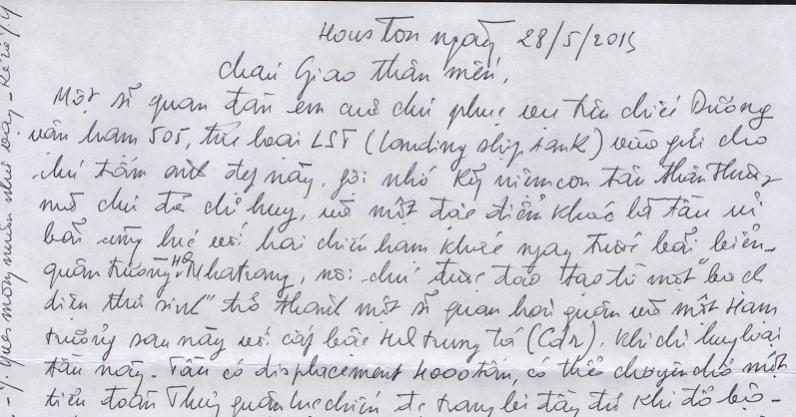 Houston ngày 28/5/2015
cháu Giao thân mến,
Một sĩ quan đàn em cũ chú phục vụ trên chiếc Dương
vận hạm 505, thuộc loại LST (Landing ship tank) vừa gửi cho
chú tấm ảnh đẹp này, gợi nhớ kỷ niệm con tàu thân thương
mà chú đã chỉ huy, và một đặc điểm khác là tàu ủi
bãi cùng lúc với hai chiến hạm khác ngay trước bãi biển
quân trường HQ Nhatrang, nơi chú được đào tạo từ một "bạch
diện thư sinh" trở thành một sĩ quan hải quân và một Hạm
trưởng sau này với cấp bậc HQ trung tá (Cdr), khi chỉ huy loại
tàu này. Tàu có displacement 4000 tấn, có thể chuyên chở một
tiểu đoàn Thủy quân lục chiến để trang bị đầy đủ khi đổ bộ-
-J. ques mong muốn như vậy - Kể về J.Y